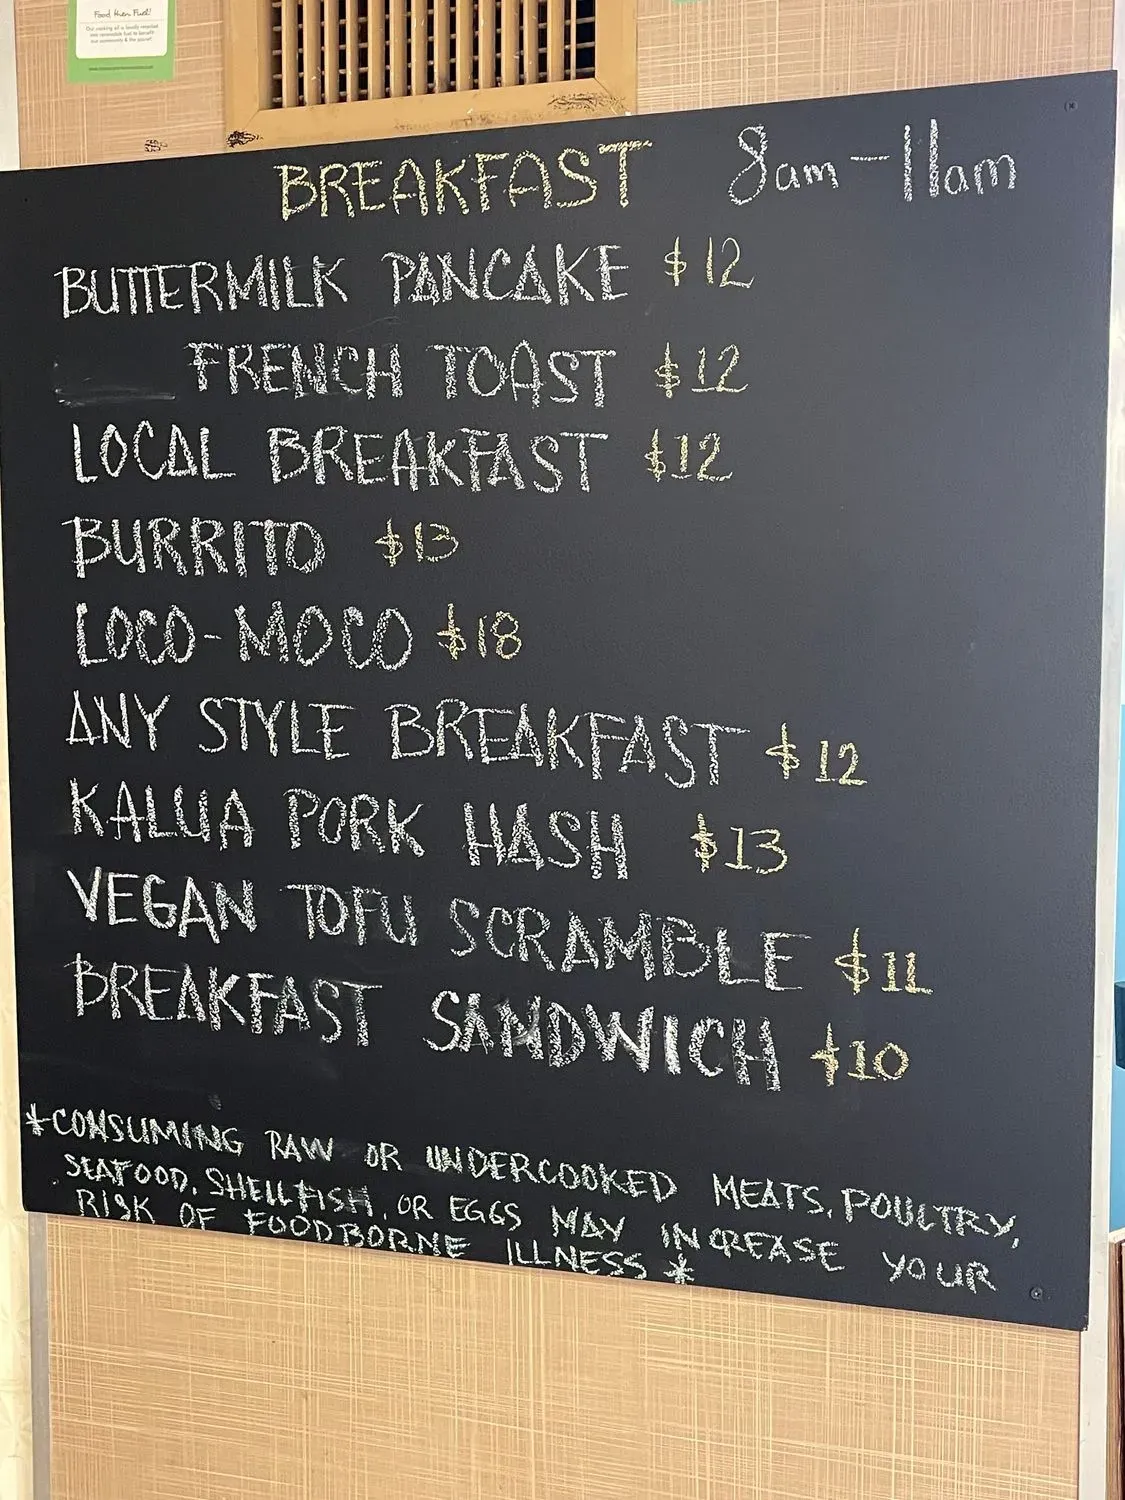 Food then Fuel!
Our cooking oil is locally recycled
into renewable fuel to benefit
our community & the planet!
BREAKFAST 8am-11am
BUTTERMILK PANCAKE $12
FRENCH TOAST $12
LOCAL BREAKFAST $12
BURRITO $13
LOCO-MOCO $18
ANY STYLE BREAKFAST $12
KALUA PORK HASH $13
VEGAN TOFU SCRAMBLE $11
BREAKFAST SANDWICH $10
*CONSUMING RAW OR UNDERCOOKED MEATS, POULTRY,
SEAFOOD, SHELLFISH, OR EGGS MAY INCREASE YOUR
RISK OF FOODBORNE ILLNESS*